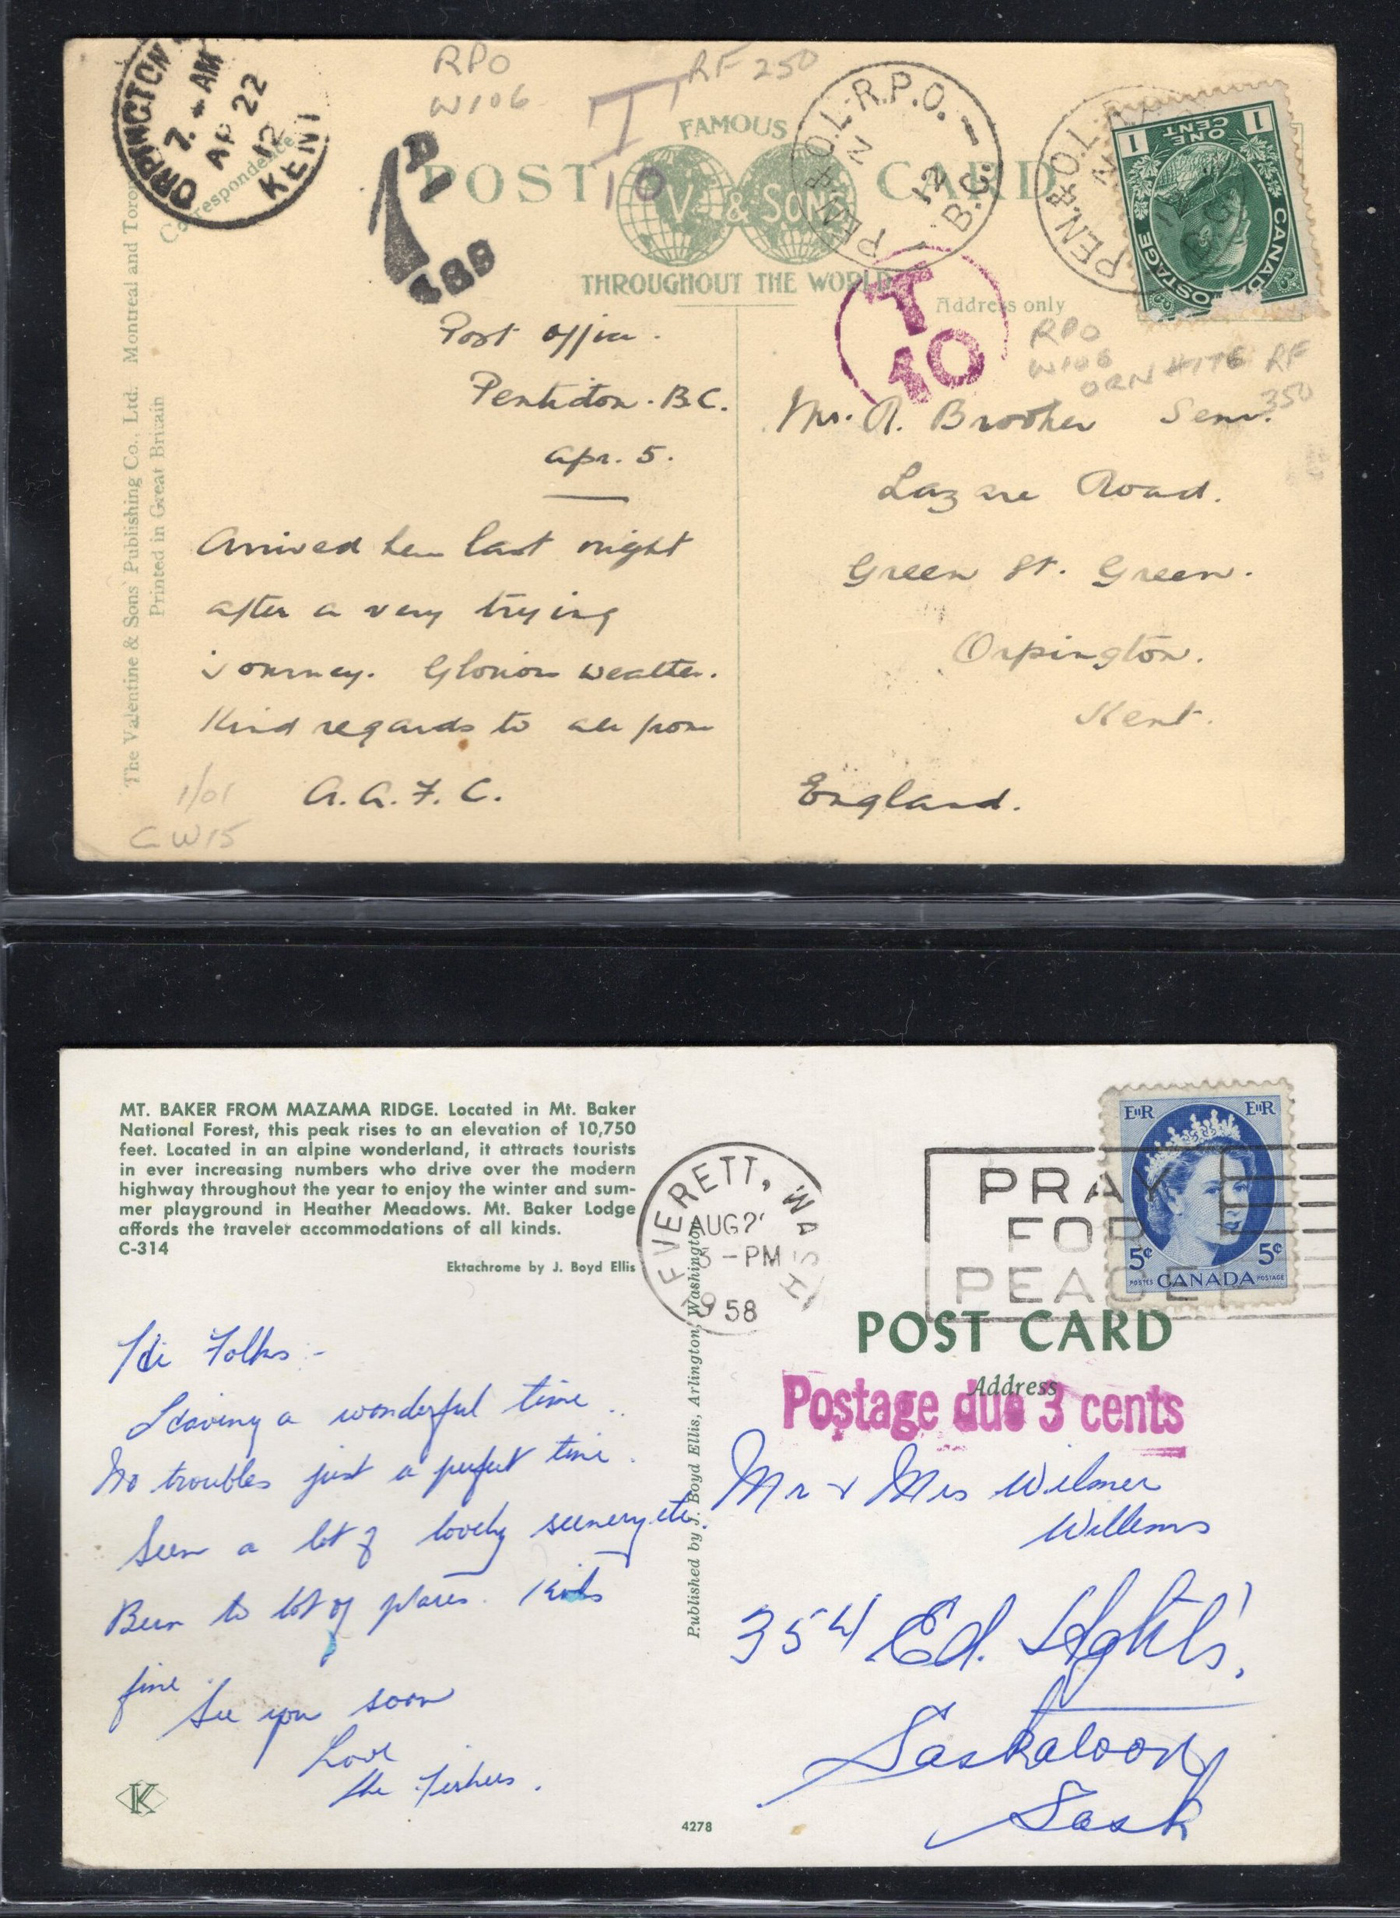 ORPINGTON
7. AM
AP 22
12
KENT
RPO
W106
RF 250
T
10
FAMOUS
POST CARD
V. & SONS
THROUGHOUT THE WORLD
PEN. & O.L. R.P.O.
N
12
B.C.
PEN. & O.L.
ONE CENT
1 1
CANADA POSTAGE
Correspondence
Address only
T
10
RPO
W106
RF
350
The Valentine & Sons' Publishing Co., Ltd. Montreal and Toronto
Printed in Great Britain
Post Office.
Penticton. B.C.
Apr. 5.
Arrived here last night
after a very trying
journey. Glorious weather.
Kind regards to all from
A. A. F. C.
1/01
CW15
Mr. A. Brooker Senr.
Lazare Road.
Green St. Green.
Orpington.
Kent.
England.
MT. BAKER FROM MAZAMA RIDGE. Located in Mt. Baker
National Forest, this peak rises to an elevation of 10,750
feet. Located in an alpine wonderland, it attracts tourists
in ever increasing numbers who drive over the modern
highway throughout the year to enjoy the winter and sum-
mer playground in Heather Meadows. Mt. Baker Lodge
affords the traveler accommodations of all kinds.
C-314
Ektachrome by J. Boyd Ellis
EVERETT, WASH
AUG 2
3 - PM
1958
PRAY
FOR
PEACE
EIIR EIIR
5¢ 5¢
POSTES CANADA POSTAGE
POST CARD
Address
Postage due 3 cents
Published by J. Boyd Ellis, Arlington, Washington
Hi Folks:-
Having a wonderful time.
No troubles just a perfect time.
Seen a lot of lovely scenery etc.
Been to lot of places. Kids
fine.
See you soon
Love
the Fishers.
Mr & Mrs Wilmer
Willems
354 Ed. Hghts.
Saskatoon
Sask
K
4278